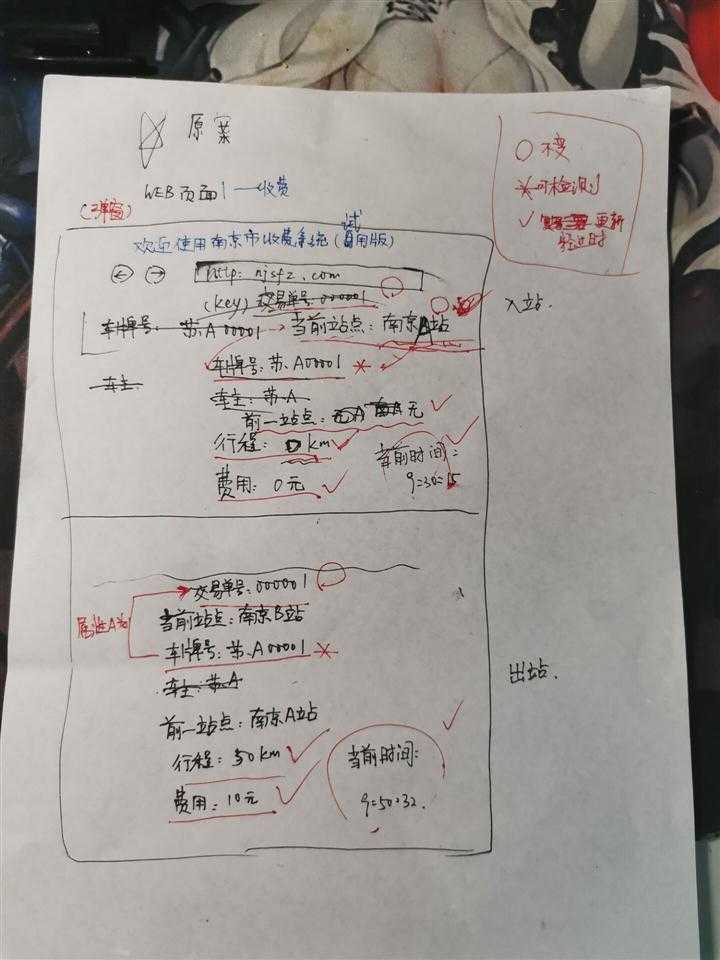 原案
○ 不变
* 可检测
✓ 更新
WEB页面1—收费
(弹窗)
欢迎使用南京市收费系统(试用版)
http: njsfz.com
(key) 交易单号:000001
车牌号: 苏A00001
当前站点: 南京A站
入站.
车牌号: 苏.A00001 *
车主
车主: 苏A
前一站点: 无
行程: 0 km
当前时间:
9:30:15
费用: 0元
交易单号:000001
属性A为
当前站点: 南京B站
车牌号: 苏.A00001 *
车主: 苏A
出站.
前一站点: 南京A站
行程: 50km
当前时间:
费用: 10元
9:50:32.